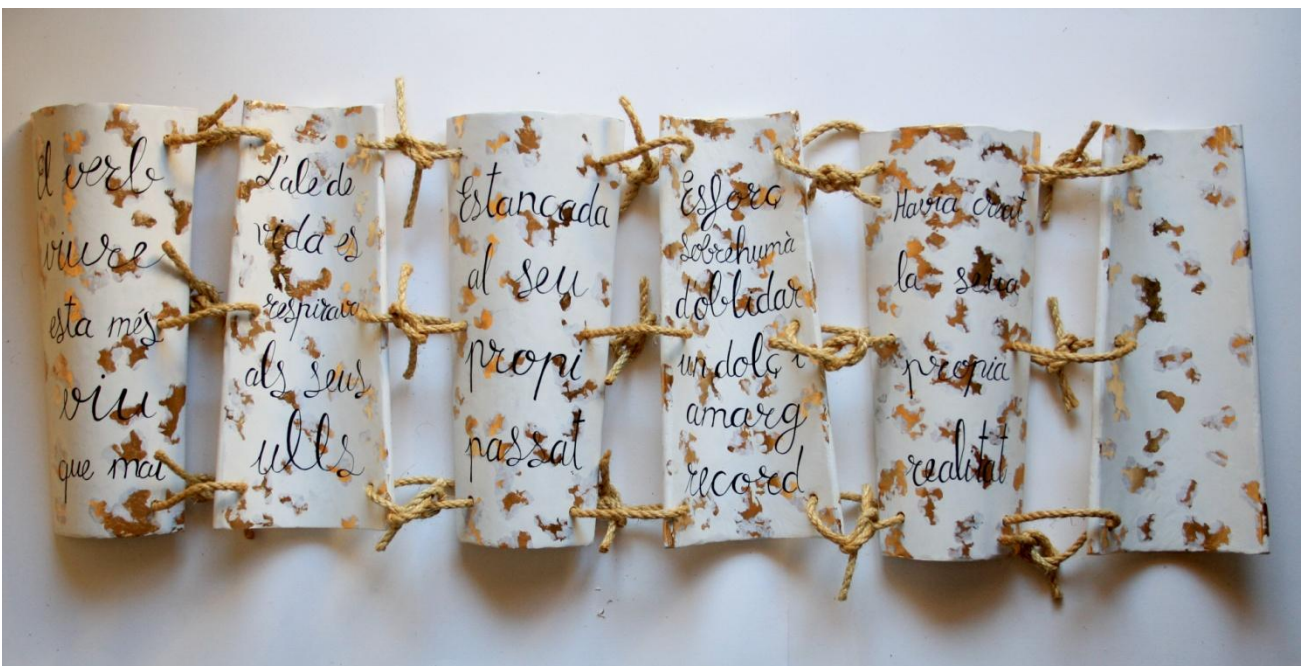 El verb
viure
esta més
viu
que mai
L'ale de
vida es
respirava
als seus
ulls
Estancada
al seu
propi
passat
Esforç
sobrehumà
doblidar
un dolç i
amarg
record
Havia creat
la seua
propia
realitat